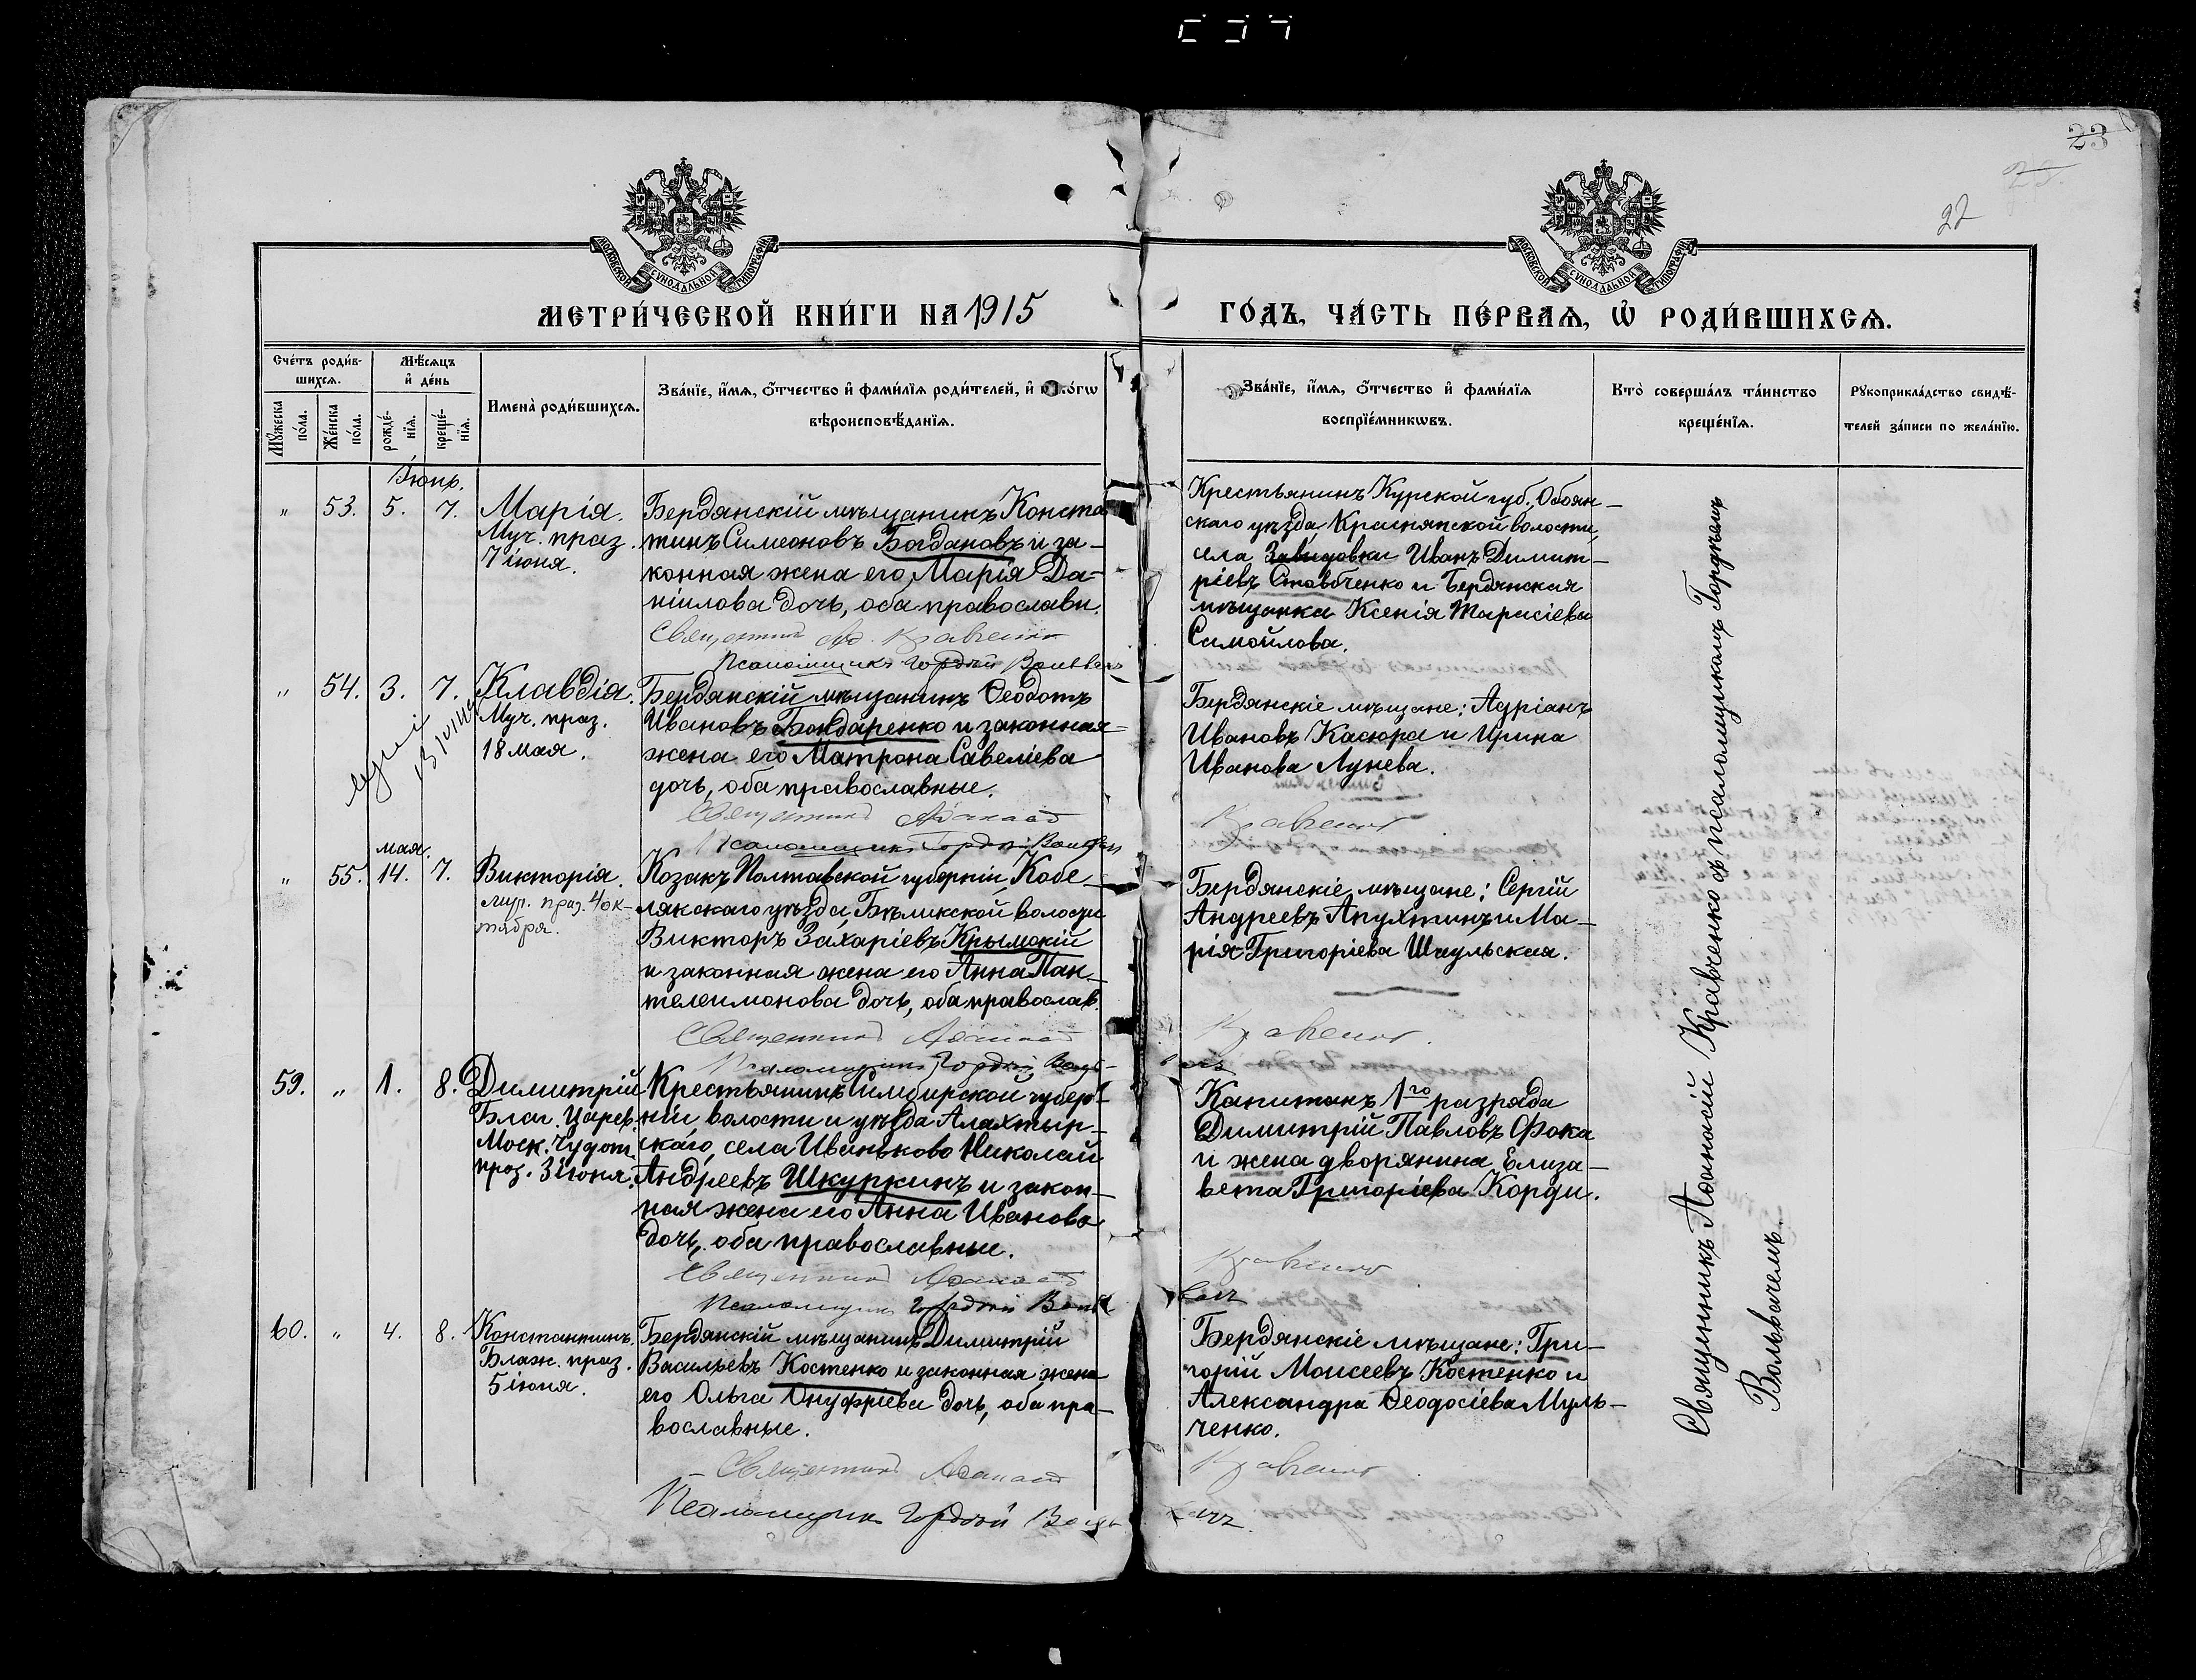 23
25.
27
МОСКОВСКОЙ СѴНОДАЛЬНОЙ ТИПОГРАФІИ
МОСКОВСКОЙ СѴНОДАЛЬНОЙ ТИПОГРАФІИ
МЕТРИ́ЧЕСКОЙ КНИ́ГИ НА 1915
ГО́ДЪ, ЧА́СТЬ ПЕ́РВАѦ, Ѡ҆ РОДИ́ВШИХСѦ.
Сче́тъ роди́в-
шихсѧ.
Мѣ́сѧцъ
и҆ де́нь
Мꙋ́жеска
по́ла.
Же́нска
по́ла.
рожде́-
нїѧ.
креще́-
нїѧ.
Имена̀ роди́вшихсѧ.
Зва́нїе, и҆́мѧ, ѻ҆́тчество и҆ фами́лїѧ роди́телей, и҆
вѣроисповѣ́данїѧ.
Зва́нїе, и҆́мѧ, ѻ҆́тчество и҆ фами́лїѧ
воспрїе́мникѡвъ.
Кто̀ соверша́лъ та́инство
креще́нїѧ.
Рꙋкоприкла́дство свидѣ́-
телей за́писи по жела́нїю.
Іюнь.
„ 53. 5. 7. Марія.
Муч. праз.
7 іюня.
Бердянскій мѣщанинъ Конста
тинъ Симеоновъ Богдановъ и за-
конная жена его Марія Да-
ніилова дочь, оба православн.
Священникъ Аѳ. Кравченко
Псаломщикъ Гордій Вольвач
Крестьянинъ Курской губ., Обоян-
скаго уѣзда Краснянской волости,
села Завидовки Иванъ Димит-
ріевъ Ставбченко и Бердянская
мѣщанка Ксенія Тарасіева
Самойлова.
„ 54. 3. 7. Клавдія.
Муч. праз.
18 мая.
13 іюня
Бердянскій мѣщанинъ Ѳеодотъ
Ивановъ Бондаренко и законная
жена его Матрона Савеліева
дочь, оба православные.
Священникъ Аѳанасій
Псаломщикъ Гордій Вольвач
Бердянскіе мѣщане: Адріанъ
Ивановъ Касюра и Ирина
Иванова Лунева.
Кравченко
мая.
„ 55. 14. 7. Викторія.
мур. праз. 4 ок-
тября.
Козакъ Полтавской губерніи, Кобе-
лякскаго уѣзда, Бѣликской волости
Викторъ Захаріевъ Крымскій
и законная жена его Анна Пан-
телеимонова дочь, оба православ.
Священникъ Аѳанасій
Псаломщикъ Гордій Воль-
Бердянскіе мѣщане: Сергій
Андреевъ Апухтинъ и Ма-
рія Григоріева Шкульская.
Кравченко.
вачъ
59. „ 1. 8. Димитрій
Благ. Царев.
Моск. Чудот.
праз. 3 іюня.
Крестьянинъ Симбирской губер-
ніи, волости и уѣзда Алахтыр-
скаго, села Иваньково Николай
Андреевъ Шкуркинъ и закон-
ная жена его Анна Иванова
дочь, оба православные.
Священникъ Аѳанасій
Псаломщикъ Гордій Воль
Капитанъ 1го разряда
Димитрій Павловъ Фока
и жена дворянина Елиза-
вета Григоріева Корди.
Кравченко
вачъ
60. „ 4. 8. Константинъ.
Блаж. праз.
5 іюня.
Бердянскій мѣщанинъ Димитрій
Васильевъ Костенко и законная жена
его Ольга Онуфріева дочь, оба пра-
вославные.
Священникъ Аѳанасій
Псаломщикъ Гордій Воль
Бердянскіе мѣщане: Гри-
горій Моисеевъ Костенко и
Александра Ѳеодосіева Муль-
ченко.
Кравченко
вачъ.
Священникъ Аѳанасій Кравченко съ псаломщикомъ Гордѣемъ
Вольвачемъ.